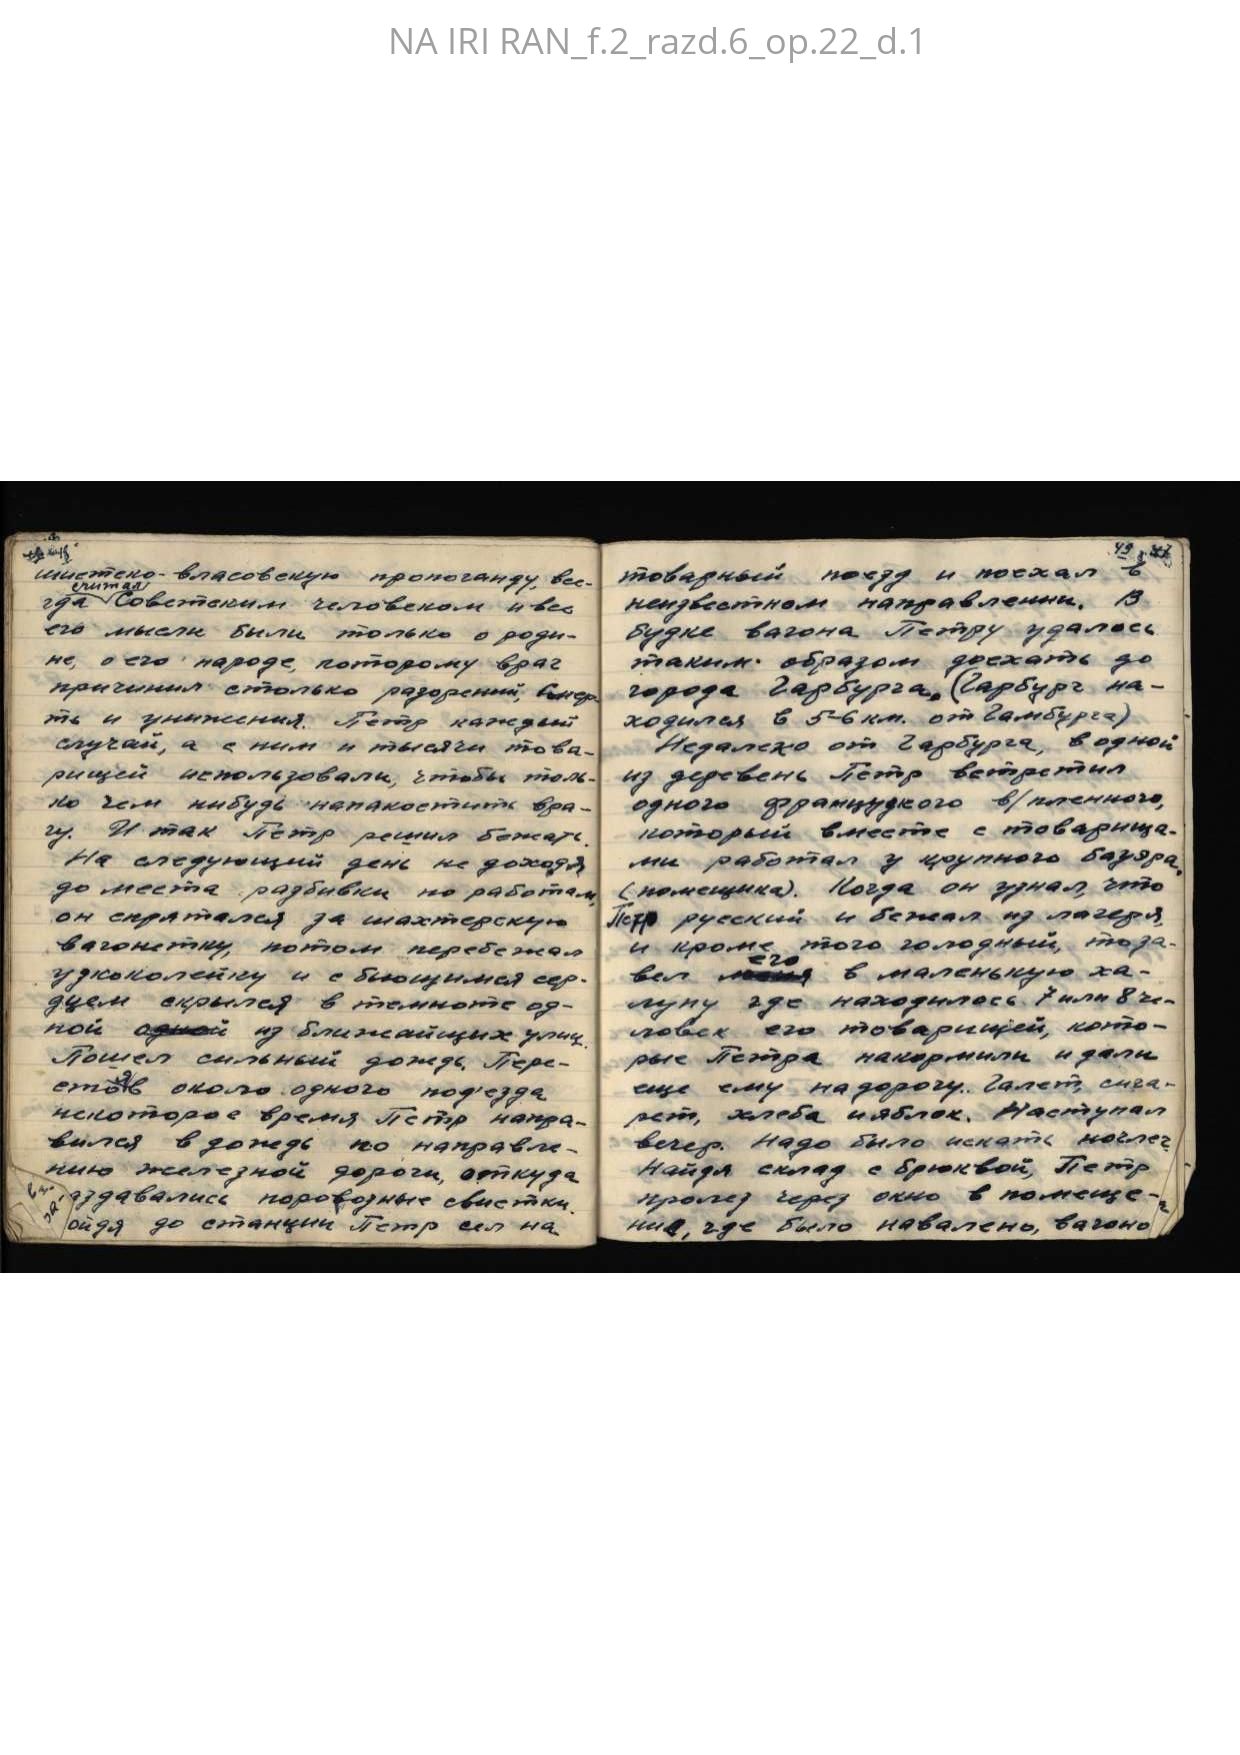 NA IRI RAN_f.2_razd.6_op.22_d.1
шистско-власовскую пропоганду, все-
считал
гда Советским человеком и все
его мысли были только о роди-
не, о его народе, которому враг
причинил столько разорений, смер
ть и унижения. Петр каждый
случай, а с ним и тысячи това-
рищей использовали, чтобы толь-
ко чем нибудь напакостить вра-
гу. И так Петр решил бежать.
На следующий день не доходя
до места разбивки по работам,
он спрятался за шахтерскую
вагонетку, потом перебежал
узкоколейку и с бьющимся сер-
дцем скрылся в темноте од-
ной одной из ближайщих улиц.
Пошел сильный дождь. Пере-
стояв около одного под'езда
некоторое время Петр напра-
вился в дождь по направле-
нию железной дороги, откуда
аздавались поровозные свистки.
ойдя до станции Петр сел на
49
товарный поезд и поехал в
неизвестном направлении. В
будке вагона Петру удалось
таким образом доехать до
города Гарбурга. (Гарбург на-
ходился в 5-6 км. от Гамбурга)
Недалеко от Гарбурга, в одной
из деревень Петр встретил
одного французкого в/пленного,
который вместе с товарища-
ми работал у крупного бауэра,
(помещика). Когда он узнал, что
Петр русский и бежал из лагеря,
и кроме того голодный, то за-
его
вел меня в маленькую ха-
лупу где находилось 7 или 8 че-
ловек его товарищей, кото-
рые Петра накормили и дали
еще ему на дорогу. Галет, сига-
рет, хлеба и яблок. Наступал
вечер. Надо было искать ночлег.
Найдя склад с брюквой, Петр
пролез через окно в помеще-
ние, где было навалено, вагоно